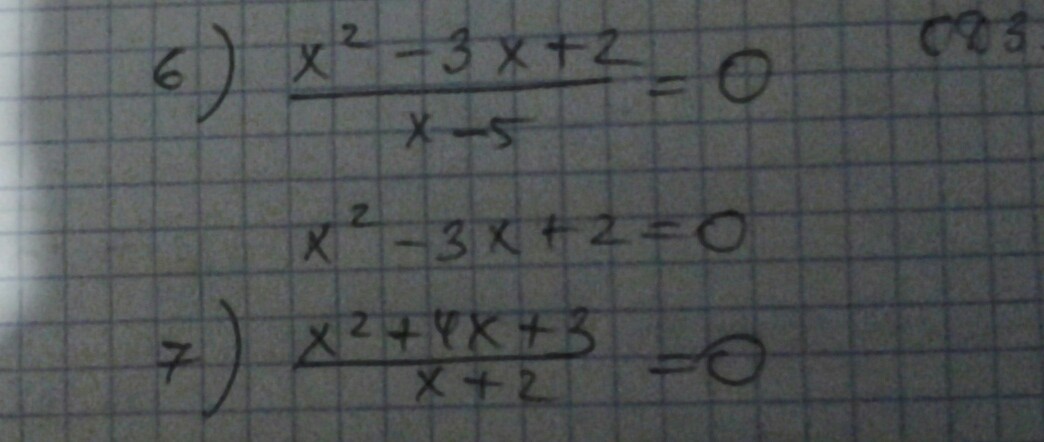 6) (x² - 3x + 2)/(x - 5) = 0
x² - 3x + 2 = 0
7) (x² + 4x + 3)/(x + 2) = 0